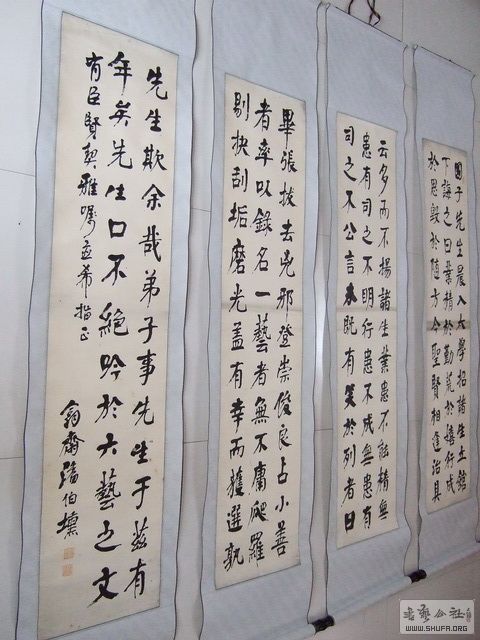 國子先生晨入太學招諸生立館
下誨之曰業精於勤荒於嬉行成
於思毀於隨方今聖賢相逢治具
云多而不揚諸生業患不能精無
患有司之不明行患不成無患有
司之不公言未既有笑於列者曰
畢張拔去兇邪登崇俊良占小善
者率以錄名一藝者無不庸爬羅
剔抉刮垢磨光蓋有幸而獲選孰
先生欺余哉弟子事先生于茲有
年矣先生口不絕吟於六藝之文
有臣賢契雅囑孟希指正
齋潘伯
WWW.SHUFA.ORG